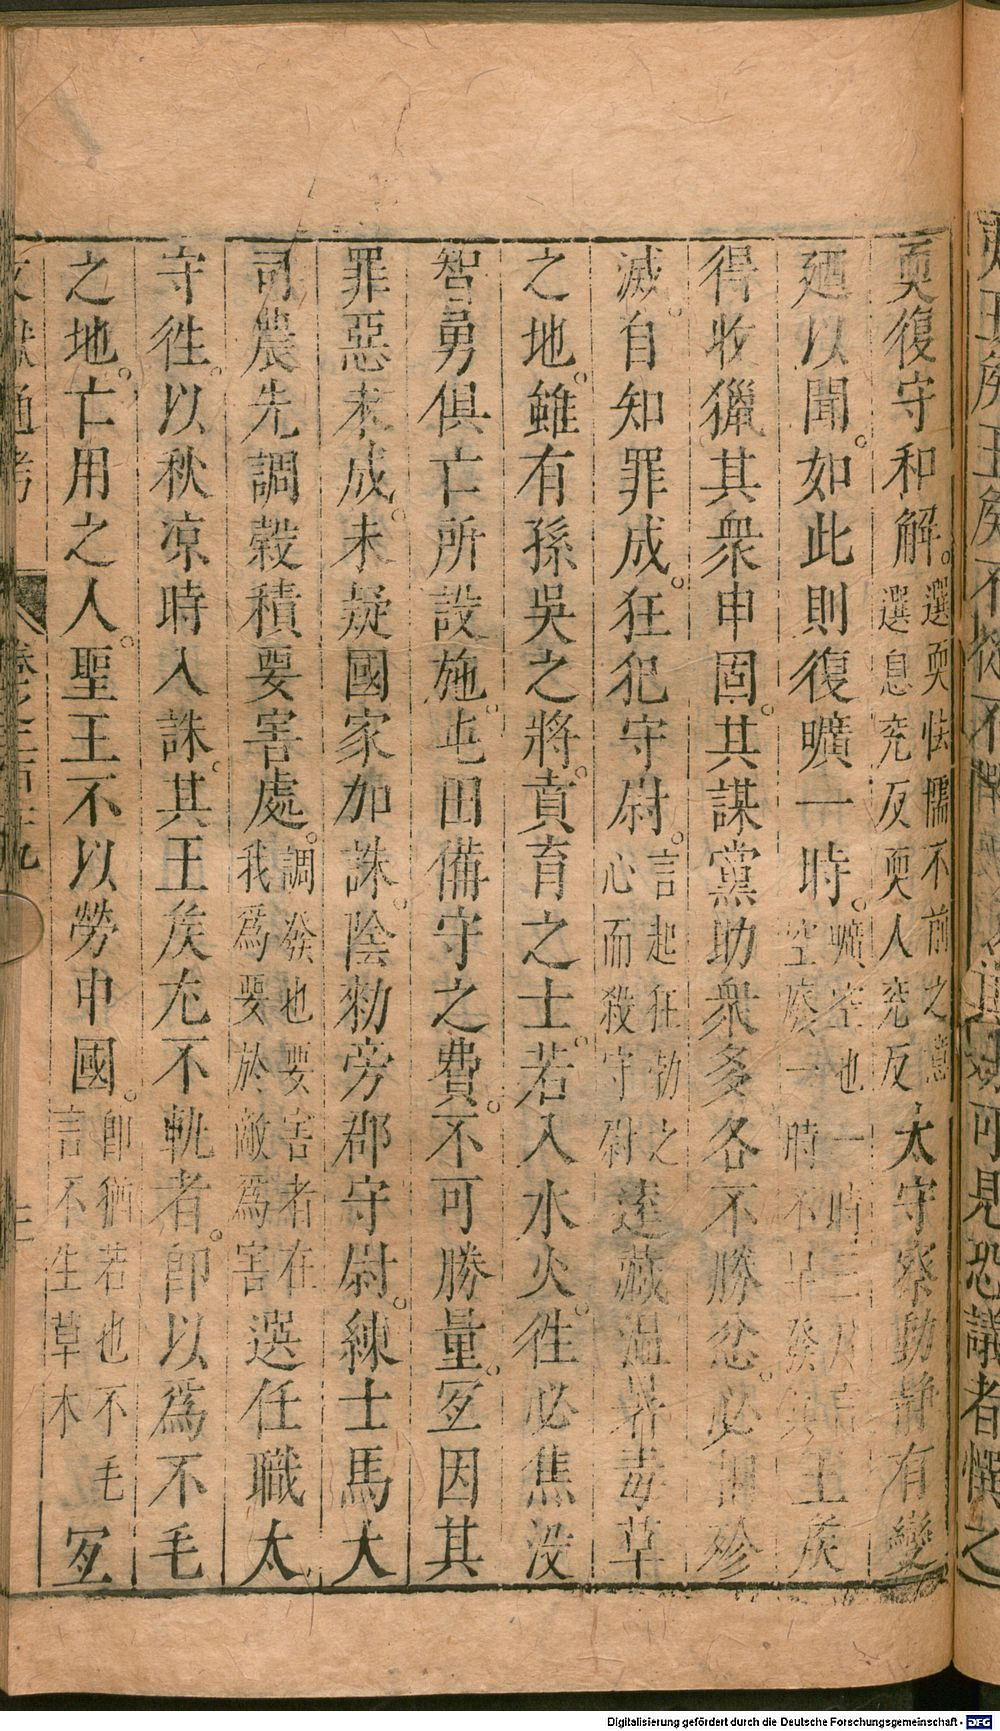 耎復守和解。選耎怯懦不前之意選息兖反耎人兖反太守察動靜有變
廼以聞。如此則復曠一時。曠空也一時三月言空廢一時不早發則王矦
得收獵其衆申固其謀黨助衆多各不勝忿。必相殄
滅。自知罪成。狂犯守尉。言起狂勃之心而殺守尉逺藏温暑毒草
之地。雖有孫吳之將。賁育之士。若入水火。徃必焦没
智勇俱亡所設施。屯田備守之費。不可勝量。冝因其
罪惡未成。未疑國家加誅。陰勑旁郡守尉。練士馬大
司農先調糓積要害處。調發也要害者在我爲要於敵爲害選任職太
守徃。以秋凉時入誅。其王矦尤不軌者。卽以爲不毛
之地。亡用之人。聖王不以勞中國。卽猶若也不毛言不生草木冝
文獻通考 三
Digitalisierung gefördert durch die Deutsche Forschungsgemeinschaft - DFG